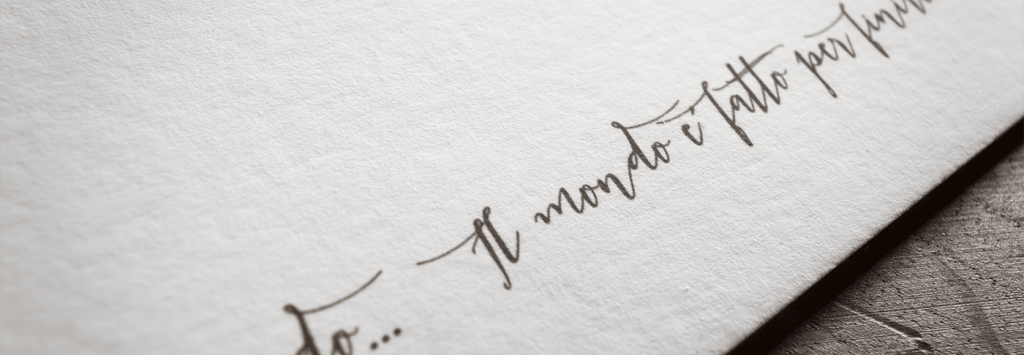 do... Il mondo è fatto per finir